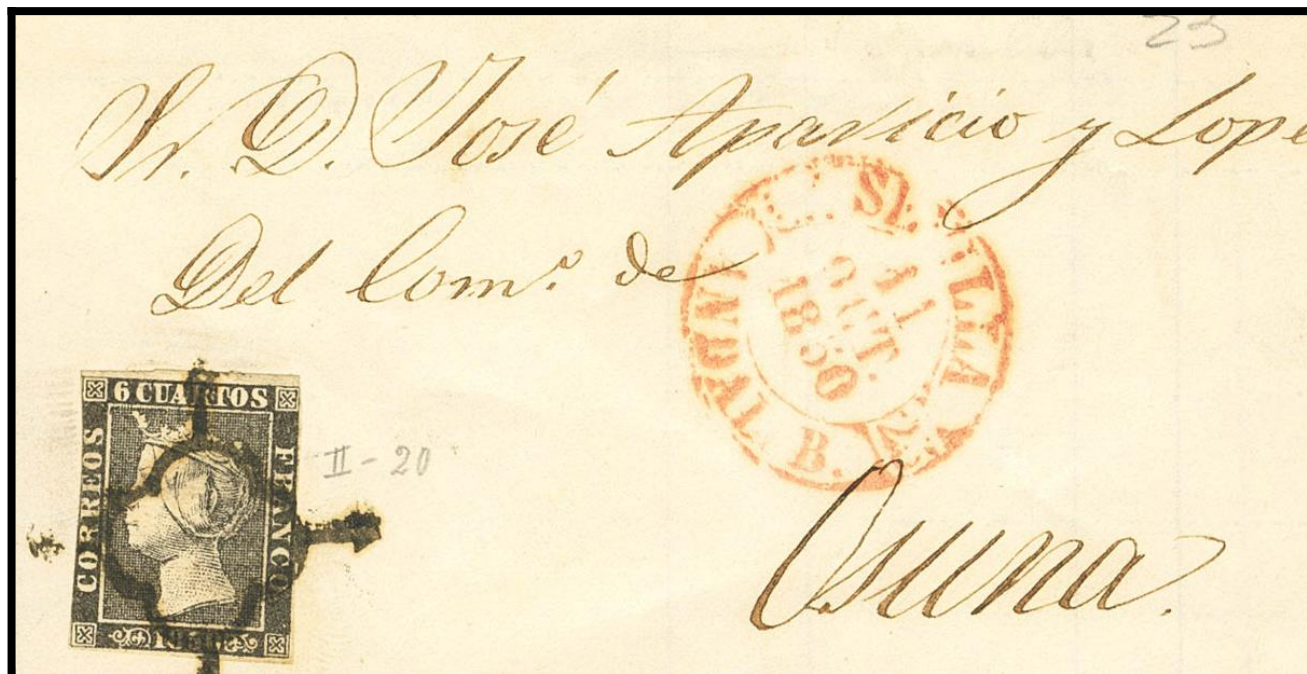 23
Sr. D. José Aparicio y Lope
Del Com.º de
SEVILLA
11
OCT.
1850
ANDAL. B.
6 CUARTOS
CORREOS
FRANCO
II - 20
Osuna.